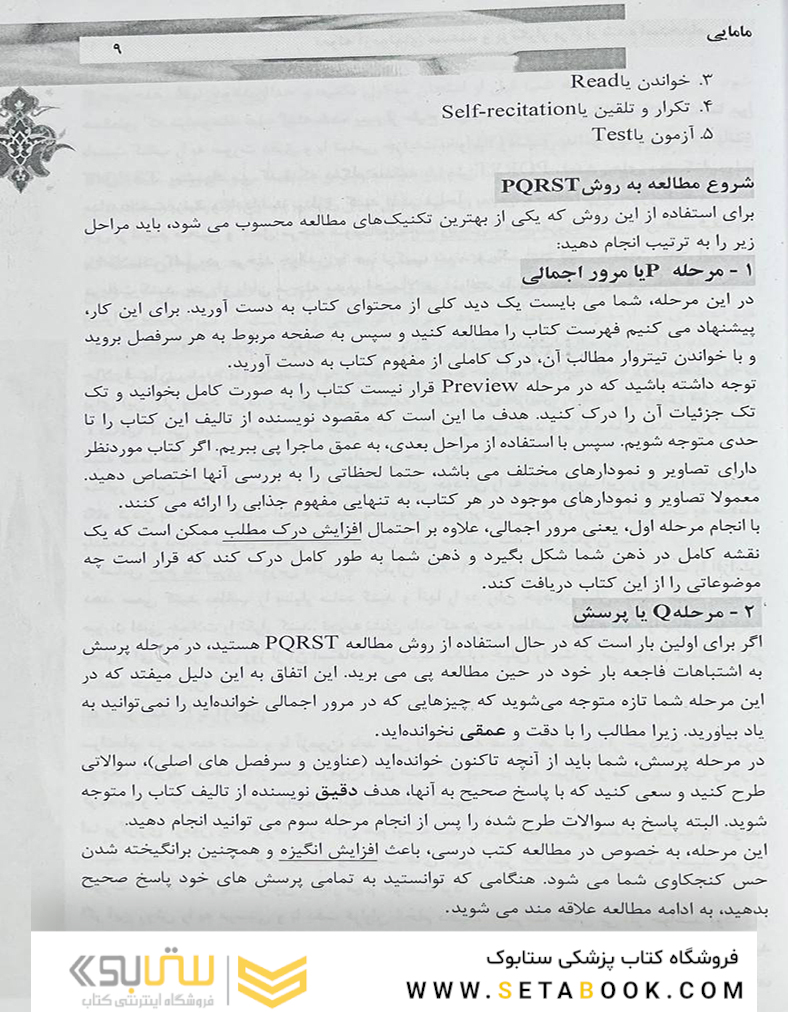 مامایی
۹
۳. خواندن یاRead
۴. تکرار و تلقین یاSelf-recitation
۵. آزمون یاTest
شروع مطالعه به روشPQRST
برای استفاده از این روش که یکی از بهترین تکنیک‌های مطالعه محسوب می شود، باید مراحل
زیر را به ترتیب انجام دهید:
۱ - مرحله Pیا مرور اجمالی
در این مرحله، شما می بایست یک دید کلی از محتوای کتاب به دست آورید. برای این کار،
پیشنهاد می کنیم فهرست کتاب را مطالعه کنید و سپس به صفحه مربوط به هر سرفصل بروید
و با خواندن تیتروار مطالب آن، درک کاملی از مفهوم کتاب به دست آورید.
توجه داشته باشید که در مرحله Preview قرار نیست کتاب را به صورت کامل بخوانید و تک
تک جزئیات آن را درک کنید. هدف ما این است که مقصود نویسنده از تالیف این کتاب را تا
حدی متوجه شویم. سپس با استفاده از مراحل بعدی، به عمق ماجرا پی ببریم. اگر کتاب موردنظر
دارای تصاویر و نمودارهای مختلف می باشد، حتما لحظاتی را به بررسی آنها اختصاص دهید.
معمولا تصاویر و نمودارهای موجود در هر کتاب، به تنهایی مفهوم جذابی را ارائه می کنند.
با انجام مرحله اول، یعنی مرور اجمالی، علاوه بر احتمال افزایش درک مطلب ممکن است که یک
نقشه کامل در ذهن شما شکل بگیرد و ذهن شما به طور کامل درک کند که قرار است چه
موضوعاتی را از این کتاب دریافت کند.
۲ - مرحلهQ یا پرسش
اگر برای اولین بار است که در حال استفاده از روش مطالعه PQRST هستید، در مرحله پرسش
به اشتباهات فاجعه بار خود در حین مطالعه پی می برید. این اتفاق به این دلیل میفتد که در
این مرحله شما تازه متوجه می‌شوید که چیزهایی که در مرور اجمالی خوانده‌اید را نمی‌توانید به
یاد بیاورید. زیرا مطالب را با دقت و عمقی نخوانده‌اید.
در مرحله پرسش، شما باید از آنچه تاکنون خوانده‌اید (عناوین و سرفصل های اصلی)، سوالاتی
طرح کنید و سعی کنید که با پاسخ صحیح به آنها، هدف دقیق نویسنده از تالیف کتاب را متوجه
شوید. البته پاسخ به سوالات طرح شده را پس از انجام مرحله سوم می توانید انجام دهید.
این مرحله، به خصوص در مطالعه کتب درسی، باعث افزایش انگیزه و همچنین برانگیخته شدن
حس کنجکاوی شما می شود. هنگامی که توانستید به تمامی پرسش های خود پاسخ صحیح
بدهید، به ادامه مطالعه علاقه مند می شوید.
فروشگاه کتاب پزشکی ستابوک
WWW.SETABOOK.COM
ستابوک
فروشگاه اینترنتی کتاب